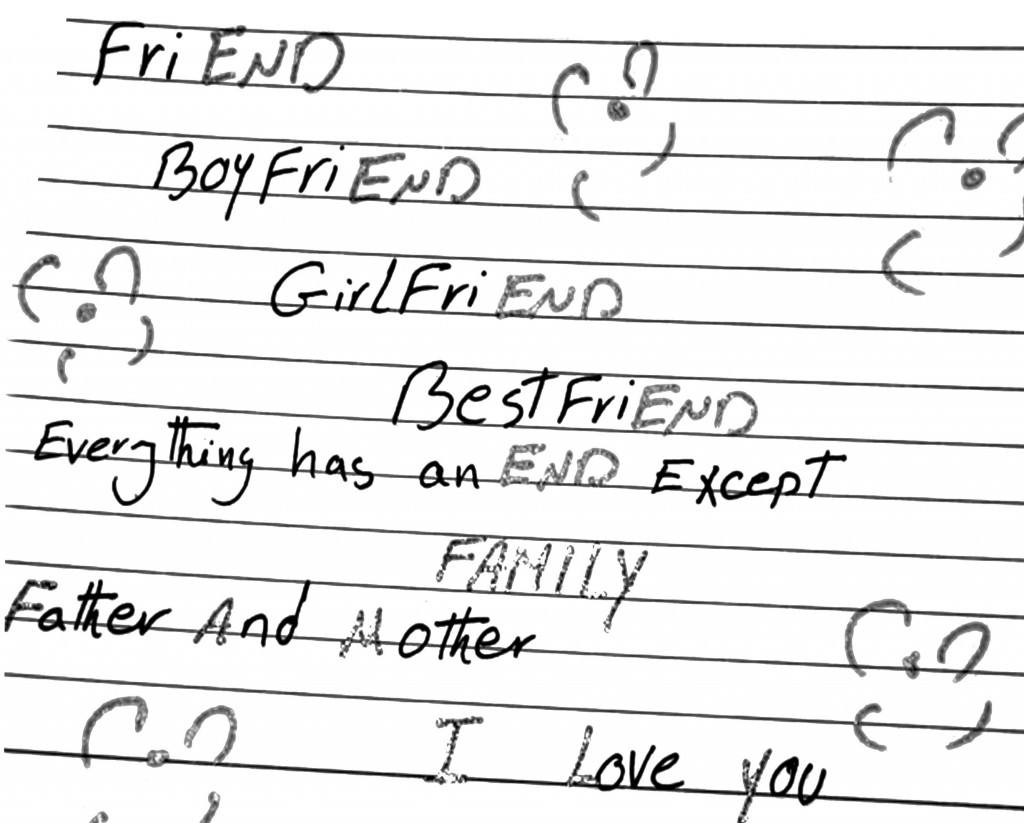 FriEND
BoyFriEND
GirlFriEND
BestFriEND
Everything has an END Except
FAMILY
Father And Mother
I Love you